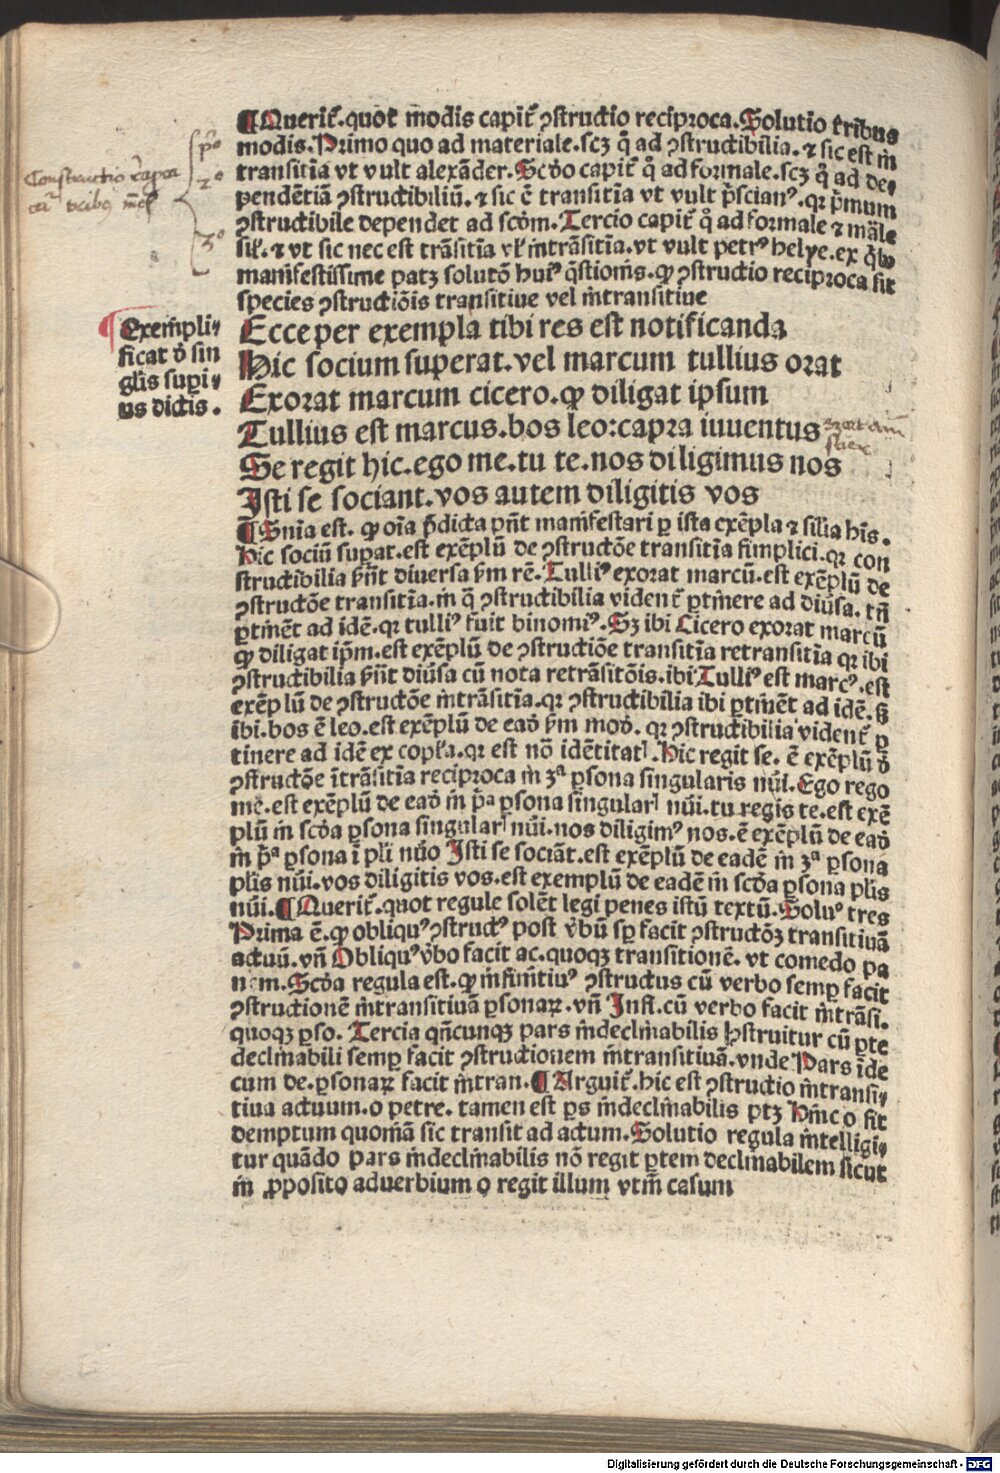 ¶Querit̄.quot modis capit̄ ꝯstructio reciproca.Solutio tribus
modis.Primo quo ad materiale.scꝫ q̄ ad ꝯstructibilia.⁊ sic est in̄
transitīa vt vult alexāder.Scd̄o capit̄ q̊ ad formale.scꝫ q̊ ad de⸗
pendētiā ꝯstructibiliū.⁊ sic ē transitīa vt vult p̄scianꝰ.qꝛ p̄mum
ꝯstructibile dependet ad scd̄m.Tercio capit̄ q̊ ad formale ⁊ māle
sil̄.⁊ vt sic nec est trāsitīa vl̄ intrāsitīa.vt vult petrꝰ helye.ex q̄bꝰ
manifestissime patꝫ solutō huiꝰ q̄stionis.ꝙ ꝯstructio reciproca sit
species ꝯstructiōis transitiue vel intransitiue
Constructio capi
tur tribus modis
pͦ
2ͦ
3ͦ
Exempli⸗
ficat d̄ sin
gl̄is supi⸗
us dictis.
Ecce per exempla tibi res est notificanda
Hic socium superat.vel marcum tullius orat
Exorat marcum cicero.ꝙ diligat ipsum
Tullius est marcus.bos leo:capra iuuentus
Se regit hic.ego me.tu te.nos diligimus nos
Isti se sociant.vos autem diligitis vos
¶Snīa est.ꝙ oīa p̄dicta pn̄t manifestari ꝑ ista exēpla ⁊ silia hīs.
Hic sociū suꝑat.est exēplū de ꝯstructōe transitīa simplici.qꝛ con
structibilia sn̄t diuersa ẜm rē.Tulliꝰ exorat marcū.est exēplū de
ꝯstructōe transitīa.in q̄ ꝯstructibilia vident̄ ꝑtinere ad diūsa.tn̄
ꝑtinēt ad idē.qꝛ tulliꝰ fuit binomiꝰ.Sꝫ ibi Cicero exorat marcū
ꝙ diligat ip̄m.est exēplū de ꝯstructiōe transitīa retransitīa qꝛ ibi
ꝯstructibilia sn̄t diūsa cū nota retrāsitōis.ibi Tulliꝰ est marcꝰ.est
exēplū de ꝯstructōe intrāsitīa.qꝛ ꝯstructibilia ibi ꝑtinēt ad idē.ß
ibi.bos ē leo.est exēplū de eadē ẜm modū.qꝛ ꝯstructibilia vident̄ ꝑ
tinere ad idē ex copl̄a.qꝛ est nō idētitatꝭ.Hic regit se.ē exēplū d̄
ꝯstructōe ītrāsitīa reciproca in 3ᵃ ꝑsona singularis nūi.Ego rego
me.est exēplū de eadē in p̄ᵃ ꝑsona singularꝭ nūi.tu regis te.est exē
plū in scd̄a ꝑsona singularꝭ nūi.nos diligimꝰ nos.ē exēplū de eadē
in p̄ᵃ ꝑsona ī pl̄i nūo Isti se sociāt.est exēplū de eadē in 3ᵃ ꝑsona
pl̄is nūi.vos diligitis vos.est exemplū de eadē in scd̄a ꝑsona pl̄is
nūi.¶Querit̄.quot regule solēt legi penes istū textū.Soluꝰ tres
Prima ē.ꝙ obliquꝰ ꝯstructꝰ post v̄bū sꝑ facit ꝯstructōꝫ transitiuā
actuū.vn̄ Obliquꝰ v̄bo facit ac.quoqꝫ transitionē.vt comedo pa
nem.Scd̄a regula est.ꝙ infinitiuꝰ ꝯstructus cū verbo semꝑ facit
ꝯstructionē intransitiuā ꝑsonaꝝ.vn̄ Infi.cū verbo facit intrāsi.
quoqꝫ ꝑso.Tercia qn̄cunqꝫ pars indeclinabilis ꝯstruitur cū ꝑte
declinabili semꝑ facit ꝯstructionem intransitiuā.vnde Pars īde
cum de.ꝑsonaꝝ facit intran.¶Arguit̄.hic est ꝯstructio intransi⸗
tiua actuum.o petre.tamen est ꝑs indeclinabilis ptꝫ Hinc o sit
demptum quoniā sic transit ad actum.Solutio regula intelligi⸗
tur quādo pars indeclinabilis nō regit ꝑtem declinabilem sicut
in ꝓposito aduerbium o regit illum vtm̄ casum
Digitalisierung gefördert durch die Deutsche Forschungsgemeinschaft - DFG